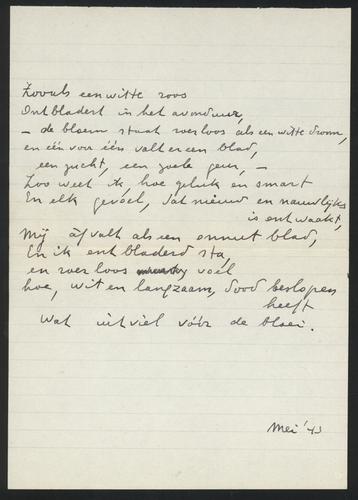 Zooals een witte roos
Ontbladert in het avonduur,
– de bloem staat roerloos als een witte droom,
en één voor één valt er een blad,
een zucht, een zoele geur, –
Zoo weet ik, hoe geluk en smart
En elk gevoel, dat nieuw en nauwlijks
is ontwaakt,
Mij afvalt als een onnut blad,
En ik ontbladerd sta,
en roerloos voel
hoe, wit en langzaam, dood beslopen
heeft
Wat uitviel vóór de bloei.
Mei '43